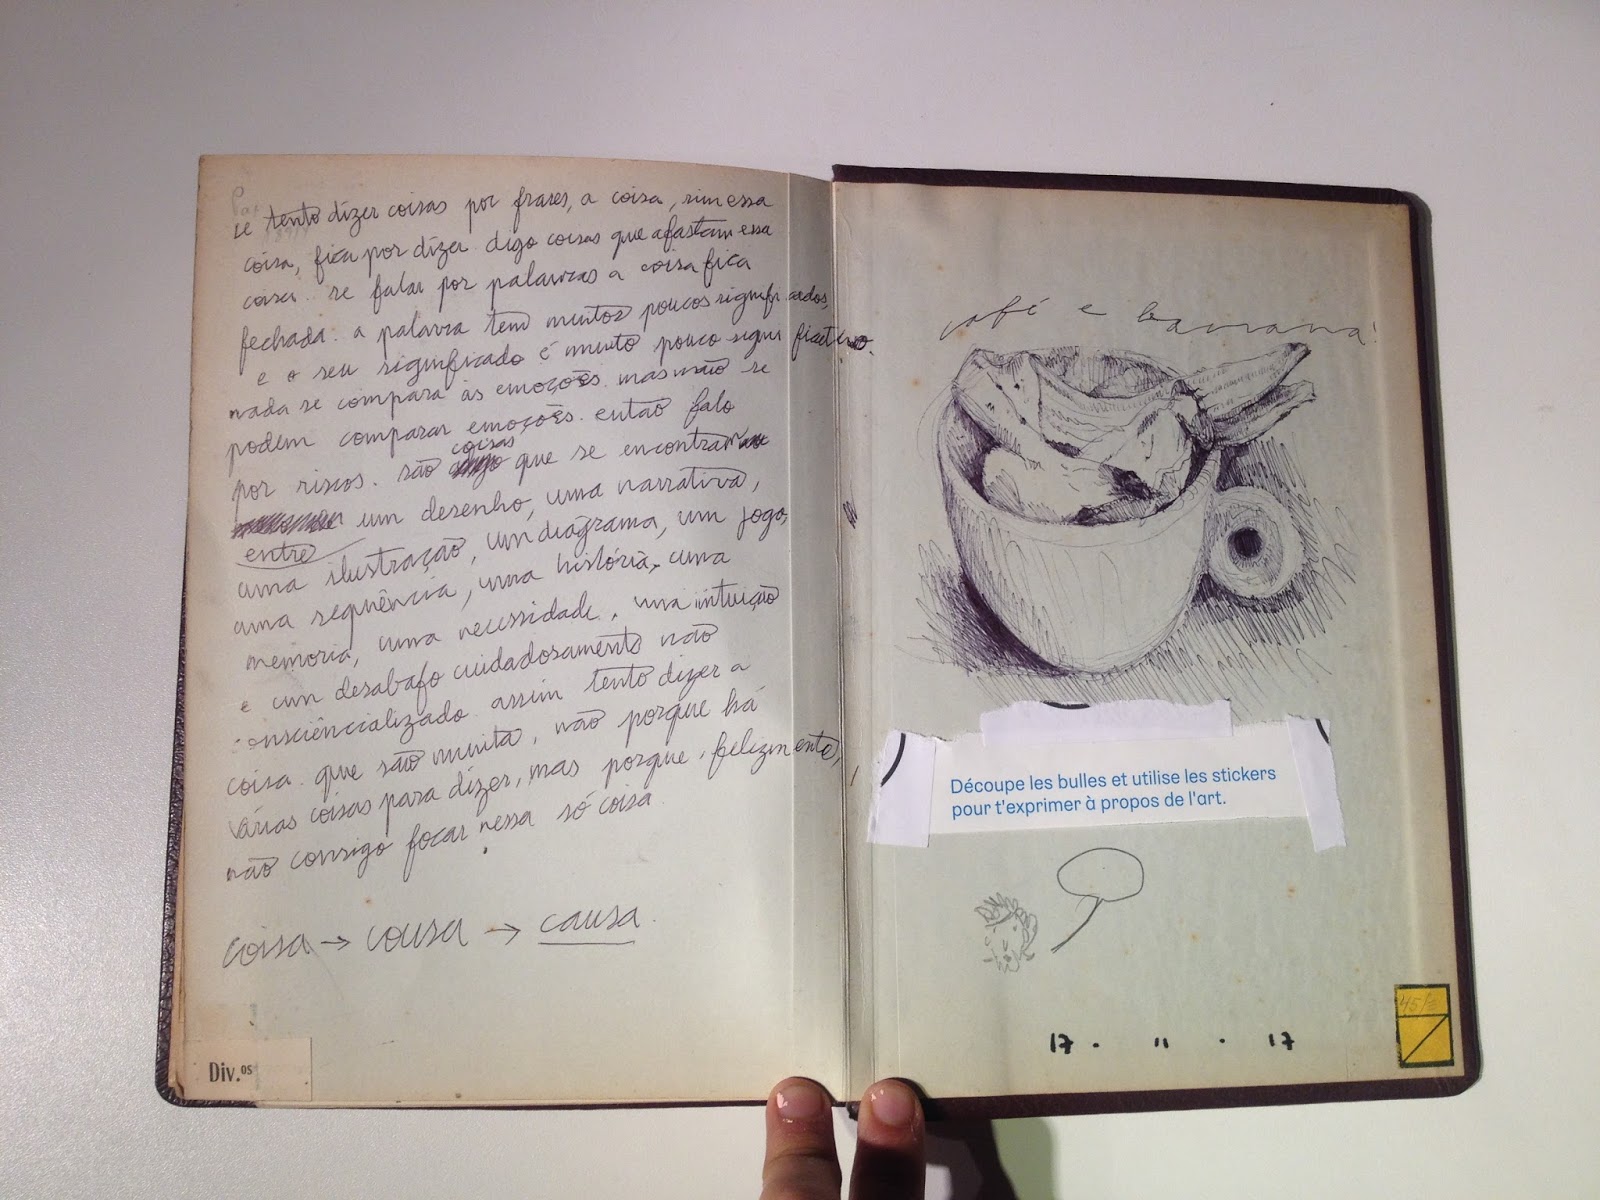 se tento dizer coisas por frases, a coisa, sim essa
coisa, fica por dizer. digo coisas que afastam essa
coisa. se falar por palavras a coisa fica
fechada. a palavra tem muitos poucos significados,
e o seu significado é muito pouco significativo.
nada se compara às emoções. mas não se
podem comparar emoções. então falo
por riscos. são coisas que se encontram
entre um desenho, uma narrativa,
uma ilustração, um diagrama, um jogo,
uma sequência, uma história, uma
memoria, uma necessidade, uma intuição
e um desabafo cuidadosamente não
consciêncializado. assim tento dizer a
coisa. que são muita, não porque há
várias coisas para dizer, mas porque, felizmente,
não consigo focar nessa só coisa.
coisa → cousa → causa.
Div.os
café e banana!
Découpe les bulles et utilise les stickers
pour t'exprimer à propos de l'art.
45/=
17 . 11 . 17